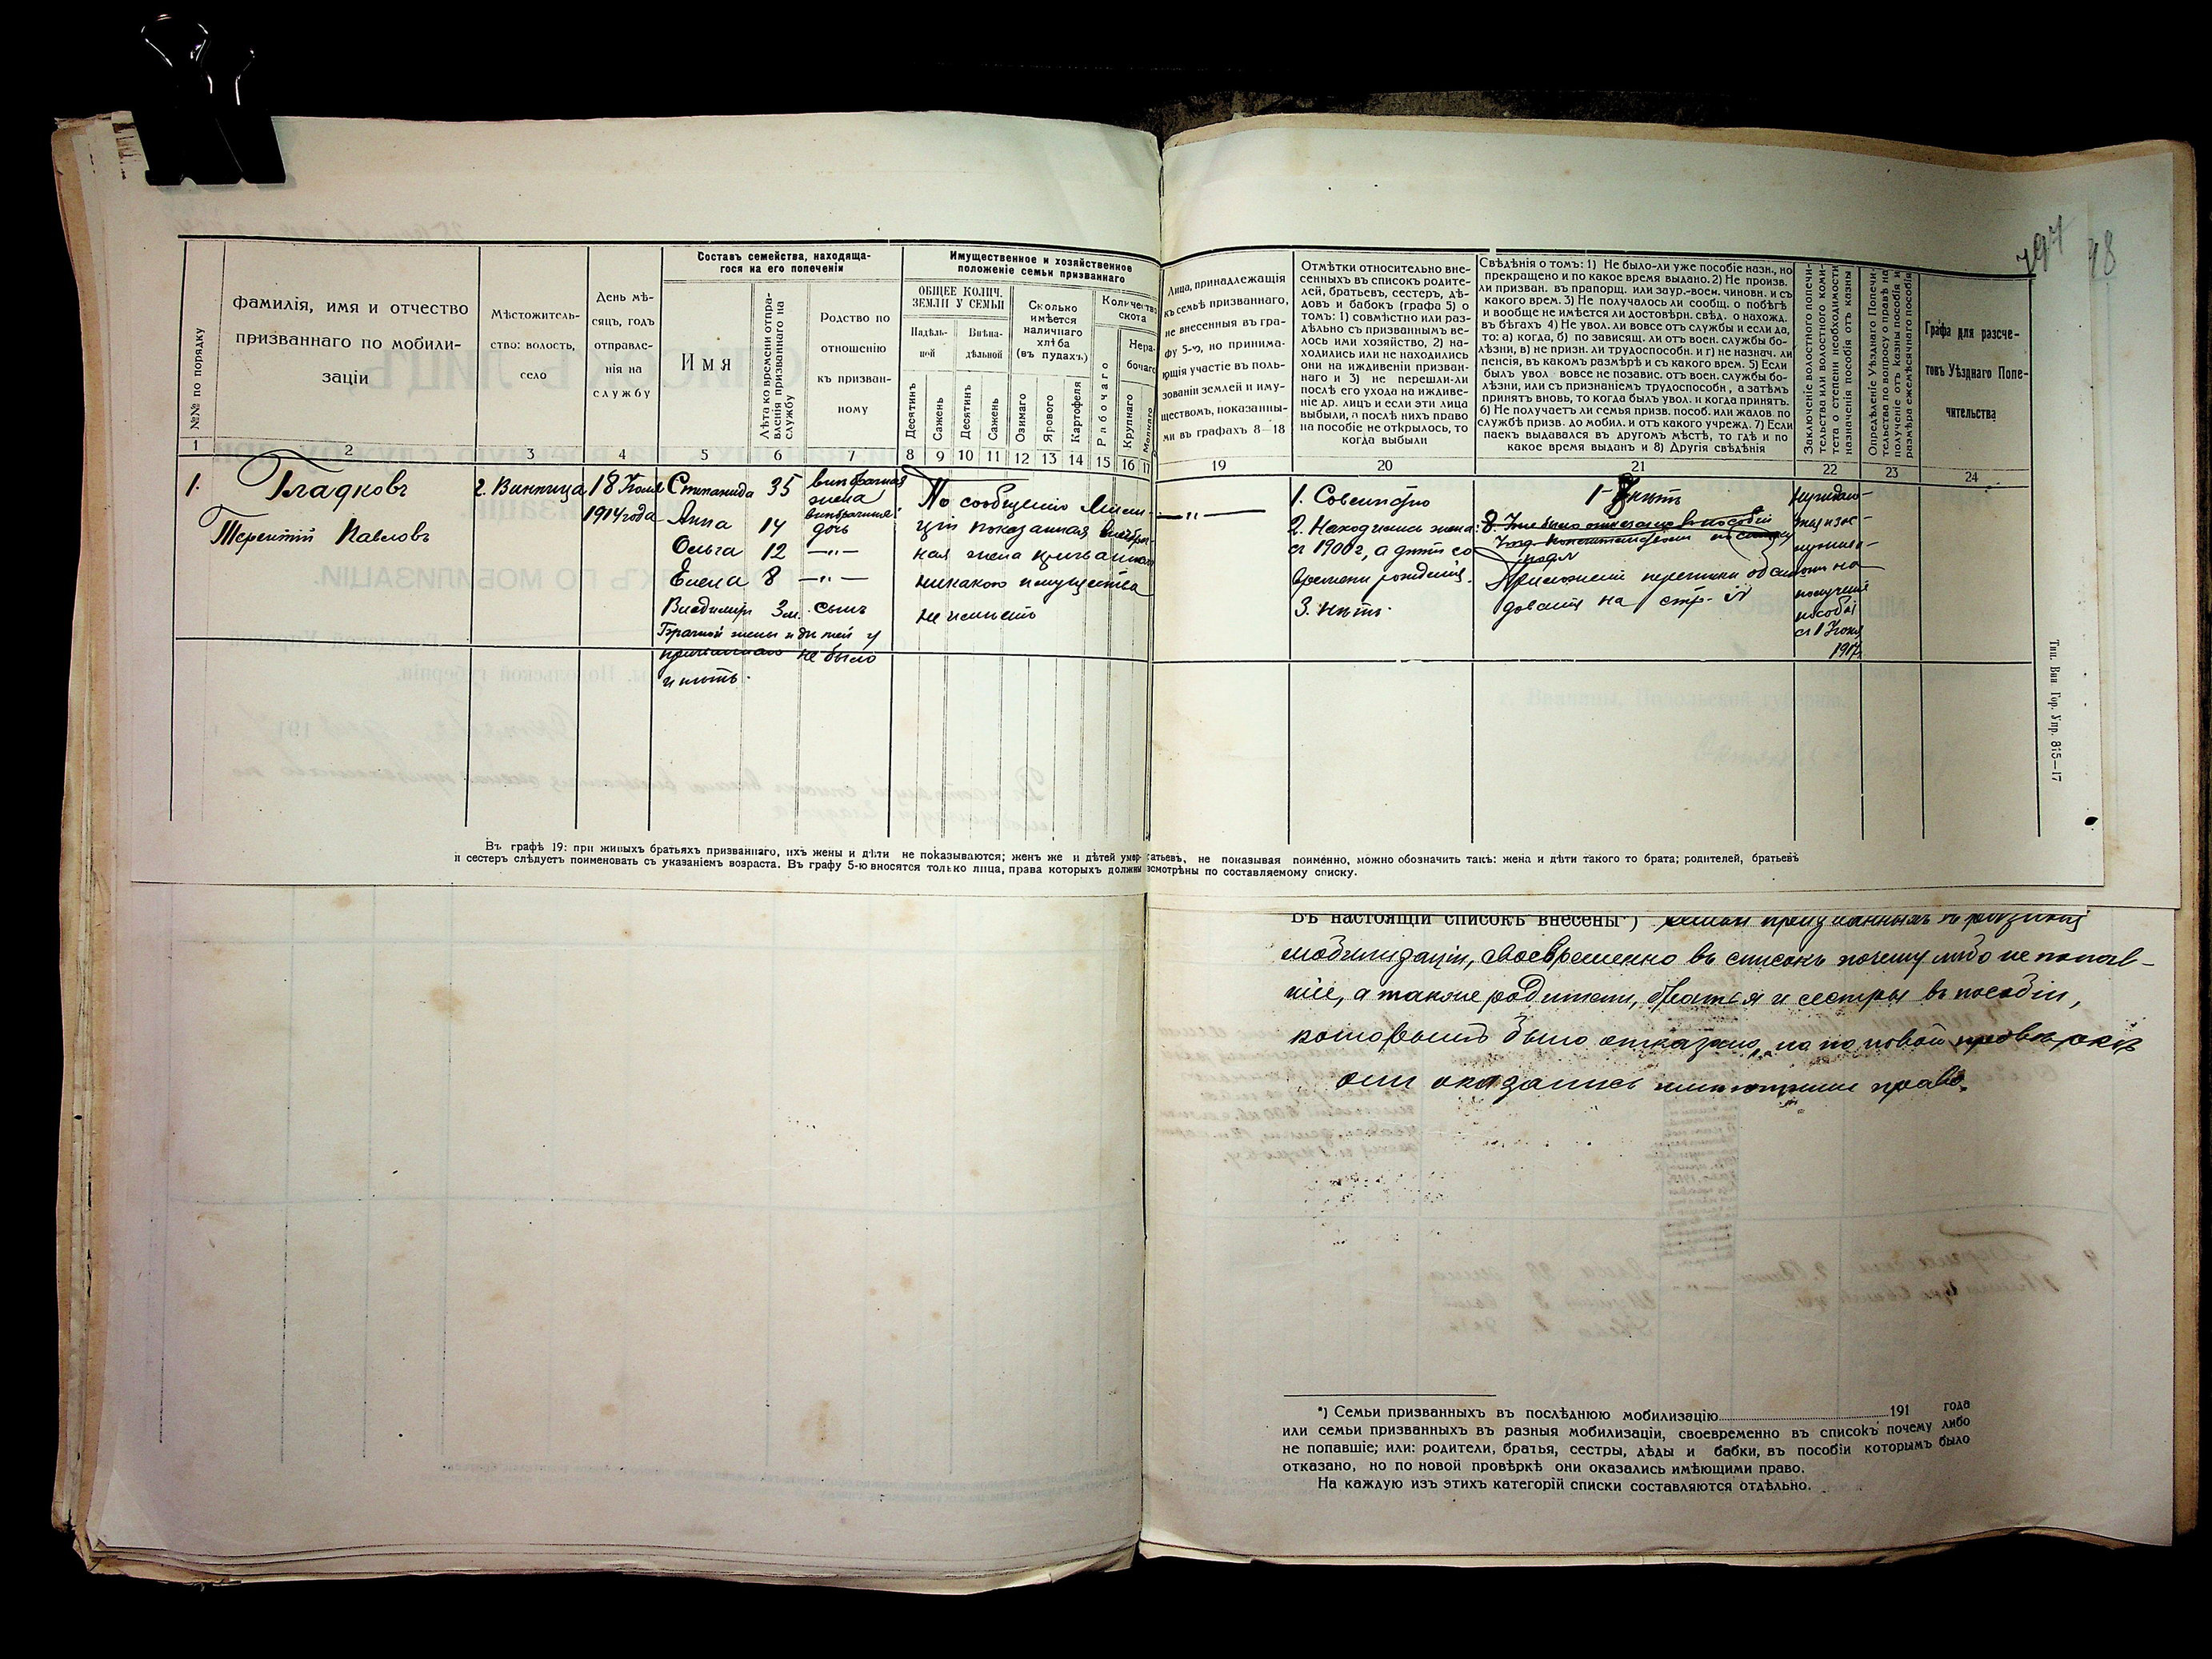 797 48
Составъ семейства, находяща-
гося на его попеченіи
Имущественное и хозяйственное
положеніе семьи призваннаго
№№ по порядку
фамилія, имя и отчество
призваннаго по мобили-
заціи
Мѣстожитель-
ство: волость,
село
День мѣ-
сяцъ, годъ
отправле-
нія на
службу
Имя
Лѣта ко времени отпра-
вленія призваннаго на
службу
Родство по
отношенію
къ призван-
ному
ОБЩЕЕ КОЛИЧ.
ЗЕМЛИ У СЕМЬИ
Надѣль-
ной
Внѣна-
дѣльной
Десятинъ
Сажень
Десятинъ
Сажень
Сколько
имѣется
наличнаго
хлѣба
(въ пудахъ)
Озимаго
Ярового
Картофеля
Количество
скота
Рабочаго
Нера-
бочаго
Крупнаго
Мелкаго
Лица, принадлежащія
къ семьѣ призваннаго,
не внесенныя въ гра-
фу 5-ю, но принима-
ющія участіе въ поль-
зованіи землей и иму-
ществомъ, показанны-
ми въ графахъ 8—18
Отмѣтки относительно вне-
сенныхъ въ списокъ родите-
лей, братьевъ, сестеръ, дѣ-
довъ и бабокъ (графа 5) о
томъ: 1) совмѣстно или раз-
дѣльно съ призваннымъ ве-
лось ими хозяйство, 2) на-
ходились или не находились
они на иждивеніи призван-
наго и 3) не перешли-ли
послѣ его ухода на иждиве-
ніе др. лицъ и если эти лица
выбыли, а послѣ нихъ право
на пособіе не открылось, то
когда выбыли
Свѣдѣнія о томъ: 1) Не было-ли уже пособіе назн., но
прекращено и по какое время выдано. 2) Не произв.
ли призван. въ прапорщ. или заур.-воен. чиновн. и съ
какого врем. 3) Не получалось ли сообщ. о побѣгѣ
и вообще не имѣется ли достовѣрн. свѣд. о нахожд.
въ бѣгахъ 4) Не увол. ли вовсе отъ службы и если да,
то: а) когда, б) по зависящ. ли отъ воен. службы бо-
лѣзни, в) не призн. ли трудоспособн. и г) не назнач. ли
пенсія, въ какомъ размѣрѣ и съ какого врем. 5) Если
былъ увол. вовсе не позавис. отъ воен. службы бо-
лѣзни, или съ признаніемъ трудоспособн., а затѣмъ
принятъ вновь, то когда былъ увол. и когда принятъ.
6) Не получаетъ ли семья призв. пособ. или жалов. по
службѣ призв. до мобил. и отъ какого учрежд. 7) Если
паекъ выдавался въ другомъ мѣстѣ, то гдѣ и по
какое время выданъ и 8) Другія свѣдѣнія
Заключеніе волостного попечи-
тельства или волостного коми-
тета о степени необходимости
назначенія пособія отъ казны
Опредѣленіе Уѣзднаго Попечи-
тельства по вопросу о правѣ на
полученіе отъ казны пособія и
размѣра ежемѣсячнаго пособія
Графа для разсче-
товъ Уѣзднаго Попе-
чительства
1 2 3 4 5 6 7 8 9 10 11 12 13 14 15 16 17 19 20 21 22 23 24
1. Гладковъ
Терентій Павловъ
г. Винница
18 Іюля
1914 года
Степанида 35 внѣбрачная
жена
Анна 14 внѣбрачная
дочь
Ольга 12 —"—
Елена 8 —"—
Владимиръ 3 м. сынъ
Брачной жены и дѣтей у
призваннаго не было
и нѣтъ.
По сообщенію Мили-
ціи показанная внѣбрач-
ная жена призваннаго
никакого имущества
не имѣетъ
—"—
1. Совмѣстно
2. Находились жена
съ 1900 г, а дѣти со
времени рожденія.
3. нѣтъ.
1-8 нѣтъ
8. Уже было отказано въ пособіи
Приложеніе переписки
на стр.
полученіе
пособія
съ 1 Іюня
1917
Тип. Вин. Гор. Упр. 815—17
Въ графѣ 19: при живыхъ братьяхъ призваннаго, ихъ жены и дѣти не показываются; женъ же и дѣтей умер- братьевъ, не показывая поименно, можно обозначить такъ: жена и дѣти такого то брата; родителей, братьевъ
и сестеръ слѣдуетъ поименовать съ указаніемъ возраста. Въ графу 5-ю вносятся только лица, права которыхъ должны разсмотрѣны по составляемому списку.
Въ настоящій списокъ внесены*) семьи призванныхъ въ разныя
мобилизаціи, своевременно въ списокъ почему либо не попав-
шіе, а также родители, братья и сестры въ пособіи,
которымъ было отказано, но по новой провѣркѣ
они оказались имѣющими право.
*) Семьи призванныхъ въ послѣднюю мобилизацію 191 года
или семьи призванныхъ въ разныя мобилизаціи, своевременно въ списокъ почему либо
не попавшіе; или: родители, братья, сестры, дѣды и бабки, въ пособіи которымъ было
отказано, но по новой провѣркѣ они оказались имѣющими право.
На каждую изъ этихъ категорій списки составляются отдѣльно.